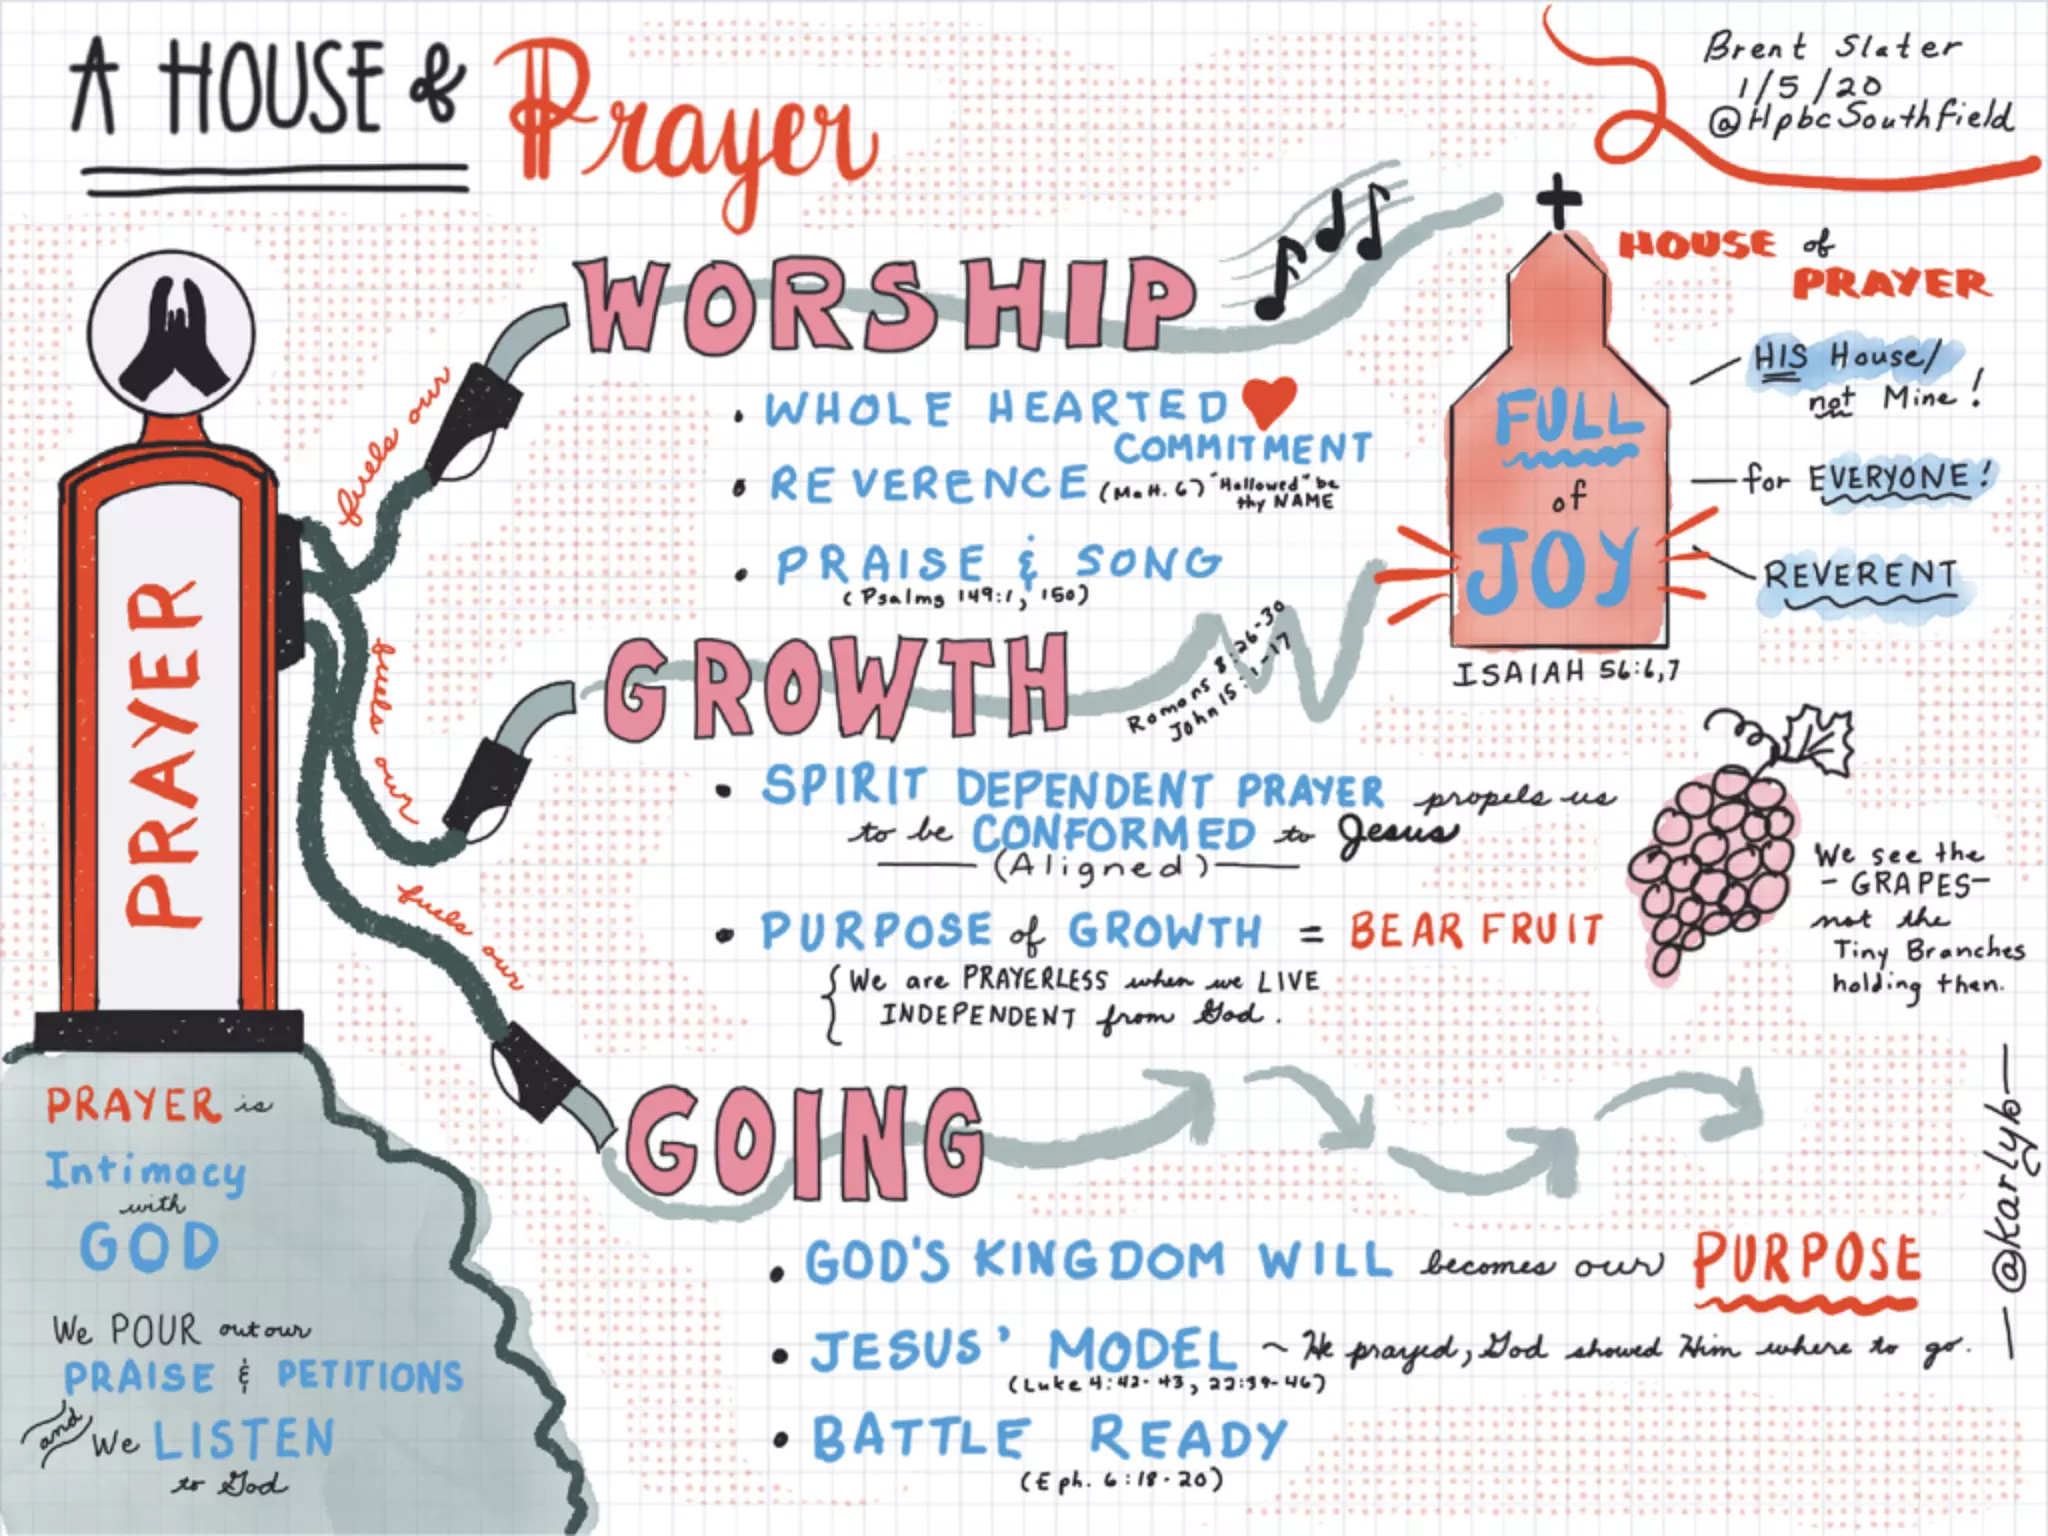 A HOUSE of Prayer
Brent Slater
1/5/20
@HpbcSouthfield
PRAYER
fuels our
WORSHIP
• WHOLE HEARTED
COMMITMENT
• REVERENCE (Matt. 6) "Hallowed" be
thy NAME
• PRAISE & SONG
(Psalms 149:1, 150)
HOUSE of
PRAYER
HIS House/
not Mine!
for EVERYONE!
REVERENT
FULL
of
JOY
ISAIAH 56:6,7
fuels our
GROWTH
Romans 8:26-30
John 15:1-17
• SPIRIT DEPENDENT PRAYER propels us
to be CONFORMED to Jesus
(Aligned)
• PURPOSE of GROWTH = BEAR FRUIT
{ We are PRAYERLESS when we LIVE
INDEPENDENT from God.
We see the
- GRAPES -
not the
Tiny Branches
holding then.
fuels our
GOING
• GOD'S KINGDOM WILL becomes our PURPOSE
• JESUS' MODEL ~ He prayed, God showed Him where to go.
(Luke 4:42-43, 22:39-46)
• BATTLE READY
(Eph. 6:18-20)
PRAYER is
Intimacy
with
GOD
We POUR out our
PRAISE & PETITIONS
and We LISTEN
to God
— @karlyb —